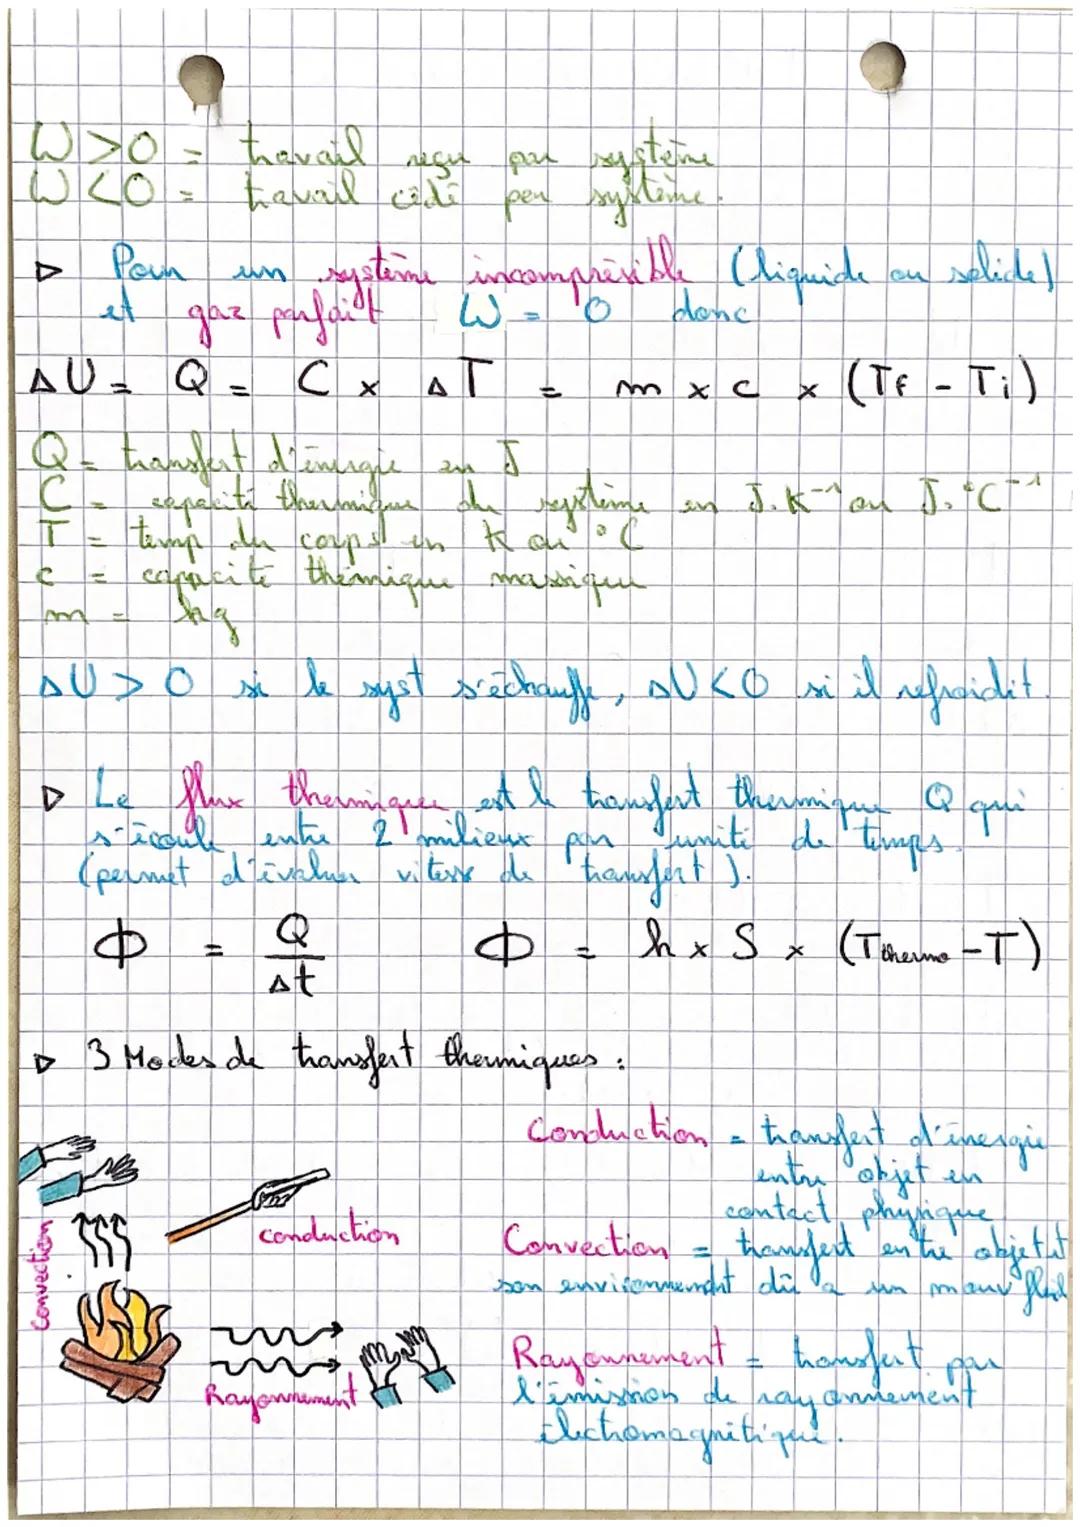 W > 0 = travail reçu par système
W < 0 = travail cédé par système.
▷ Pour un système incompréssible (liquide ou solide)
et gaz parfait W = 0 donc
ΔU = Q = C x ΔT = m x c x (Tf - Ti)
Q = transfert d'énergie en J
C = capacité thermique du système en J.K⁻¹ ou J.°C⁻¹
T = temp du corps en K ou °C
c = capacité thermique massique
m = kg
ΔU > 0 si le syst s'échauffe, ΔU < 0 si il refroidit.
▷ Le flux thermique est le transfert thermique Q qui
s'écoule entre 2 milieux par unité de temps.
(permet d'évaluer vitesse de transfert).
Φ = Q/Δt Φ = h x S x (Tthermo - T)
▷ 3 Modes de transfert thermiques :
Conduction = transfert d'énergie
entre objet en
contact physique
conduction
Convection = transfert entre objet et
son environnement dû à un mouv fluid
convection
Rayonnement = transfert par
l'émission de rayonnement
électromagnétique.
Rayonnement